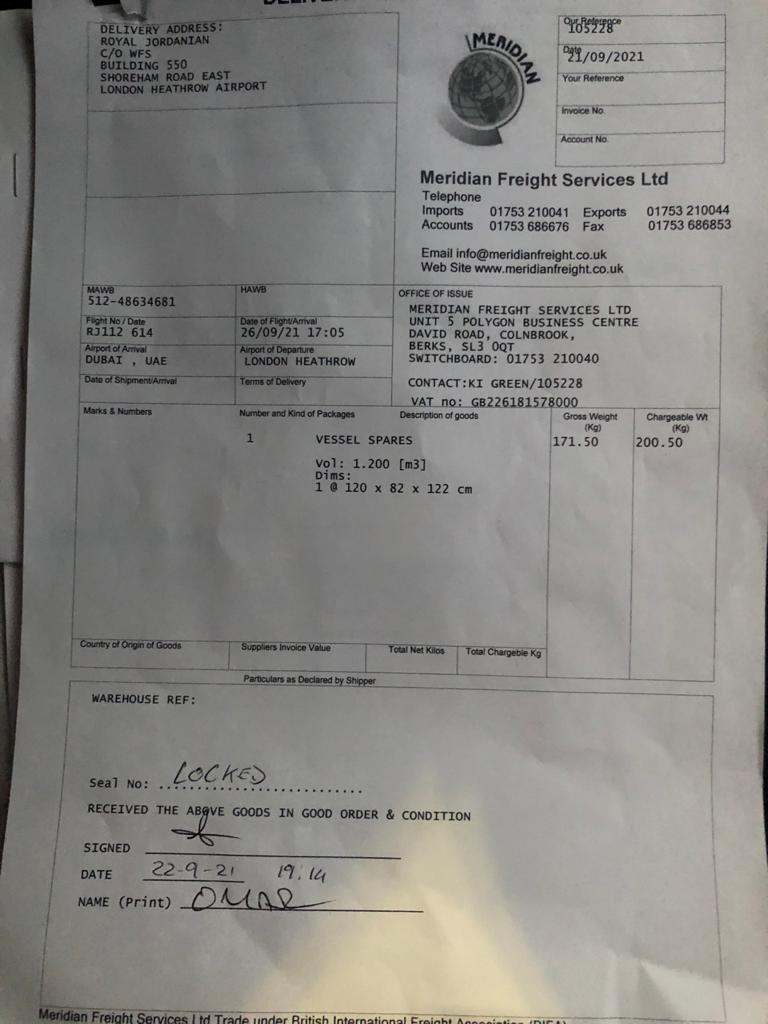 DELIVERY ADDRESS:
ROYAL JORDANIAN
C/O WFS
BUILDING 550
SHOREHAM ROAD EAST
LONDON HEATHROW AIRPORT
MERIDIAN
Our Reference
105228
Date
21/09/2021
Your Reference
Invoice No.
Account No.
Meridian Freight Services Ltd
Telephone
Imports 01753 210041 Exports 01753 210044
Accounts 01753 686676 Fax 01753 686853
Email info@meridianfreight.co.uk
Web Site www.meridianfreight.co.uk
MAWB
512-48634681
HAWB
Flight No / Date
RJ112 614
Date of Flight/Arrival
26/09/21 17:05
Airport of Arrival
DUBAI , UAE
Airport of Departure
LONDON HEATHROW
Date of Shipment/Arrival
Terms of Delivery
OFFICE OF ISSUE
MERIDIAN FREIGHT SERVICES LTD
UNIT 5 POLYGON BUSINESS CENTRE
DAVID ROAD, COLNBROOK,
BERKS, SL3 0QT
SWITCHBOARD: 01753 210040
CONTACT:KI GREEN/105228
VAT no: GB226181578000
Marks & Numbers
Number and Kind of Packages
Description of goods
Gross Weight
(Kg)
Chargeable Wt
(Kg)
1 VESSEL SPARES 171.50 200.50
Vol: 1.200 [m3]
Dims:
1 @ 120 x 82 x 122 cm
Country of Origin of Goods
Suppliers Invoice Value
Total Net Kilos
Total Chargeble Kg
Particulars as Declared by Shipper
WAREHOUSE REF:
Seal No: LOCKED
RECEIVED THE ABOVE GOODS IN GOOD ORDER & CONDITION
SIGNED
DATE 22-9-21 19.14
NAME (Print) OMAR
Meridian Freight Services Ltd Trade under British International Freight Association (BIFA)